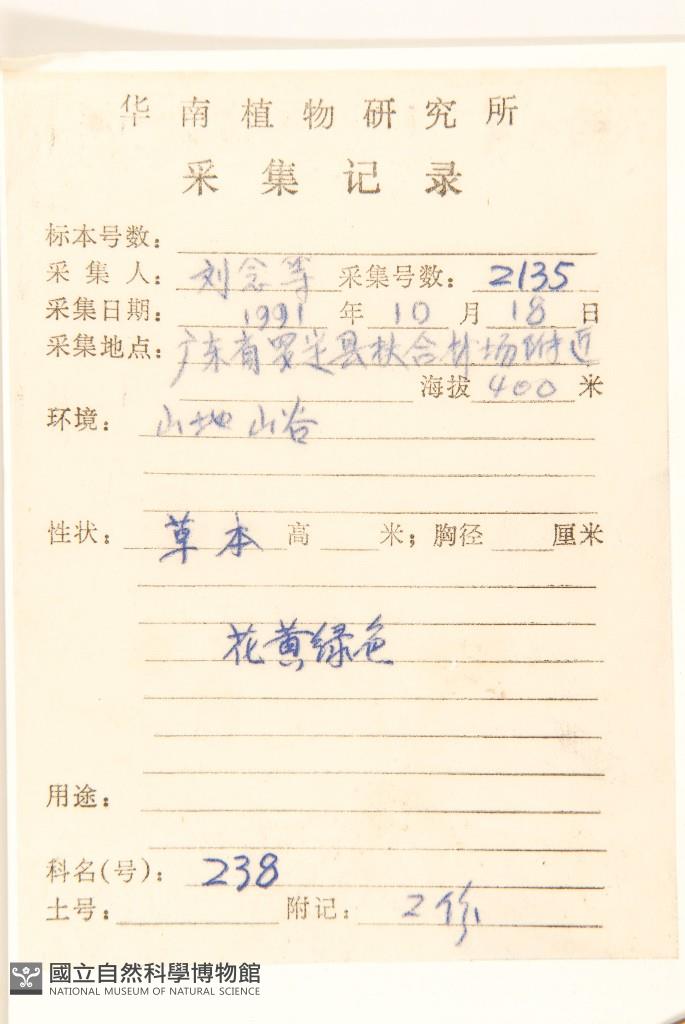 华南植物研究所
采集记录
标本号数:
采集人: 刘念等 采集号数: 2135
采集日期: 1991 年 10 月 18 日
采集地点: 广东省罗定县 合林场附近
海拔 400 米
环境: 山地 山谷
性状: 草本 高 米; 胸径 厘米
花黄绿色
用途:
科名(号): 238
土号: 附记: 2份
國立自然科學博物館
NATIONAL MUSEUM OF NATURAL SCIENCE